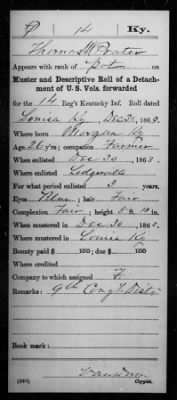 P 14 Ky.
Thomas M Prater
Appears with rank of Pvt on
Muster and Descriptive Roll of a Detach-
ment of U. S. Vols. forwarded
for the 14 Reg't Kentucky Inf. Roll dated
Louisa Ky Dec 31, 1863.
Where born Morgan Ky
Age 26 y'rs; occupation Farmer
When enlisted Dec 20, 1863.
Where enlisted
For what period enlisted 3 years.
Eyes Blue; hair Fair
Complexion Fair; height 5 ft. 10 in.
When mustered in Dec 30, 1863.
Where mustered in Louisa Ky
Bounty paid $ 100; due $ 100
Where credited
Company to which assigned F
Remarks: 9th Cong'l Distr
Book mark:
Copyist.